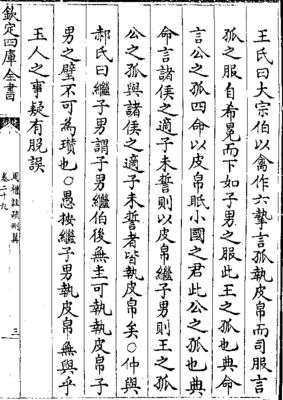 王氏曰大宗伯以禽作六摯言孤執皮帛而司服言
孤之服自希冕而下如子男之服此王之孤也典命
言公之孤四命以皮帛眡小國之君此公之孤也典
命言諸侯之適子未誓則以皮帛繼子男則王之孤
公之孤與諸侯之適子未誓者皆執皮帛矣○仲輿
郝氏曰繼子男謂子男繼伯後無圭可執執皮帛子
男之璧不可為瓚也○愚按繼子男執皮帛無與乎
玉人之事疑有脫誤
欽定四庫全書
周禮註疏刪翼
卷二十九
三